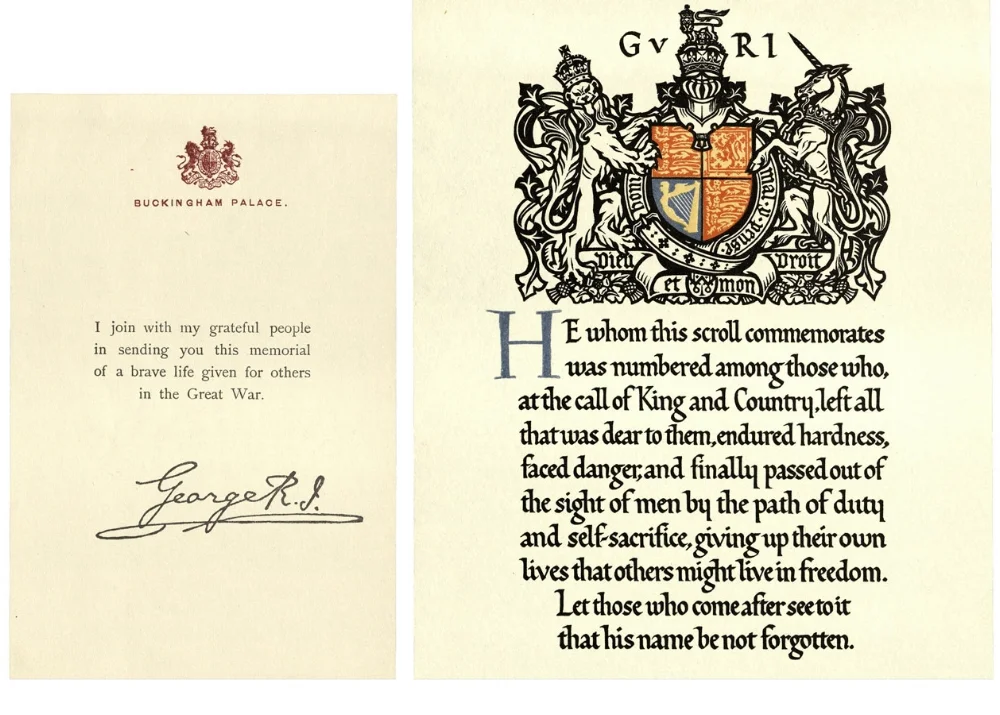 BUCKINGHAM PALACE.
I join with my grateful people
in sending you this memorial
of a brave life given for others
in the Great War.
George R.I.
G V R I
honi mal·y·pense
Dieu et mon Droit
HE whom this scroll commemorates
was numbered among those who,
at the call of King and Country, left all
that was dear to them, endured hardness,
faced danger, and finally passed out of
the sight of men by the path of duty
and self-sacrifice, giving up their own
lives that others might live in freedom.
Let those who come after see to it
that his name be not forgotten.